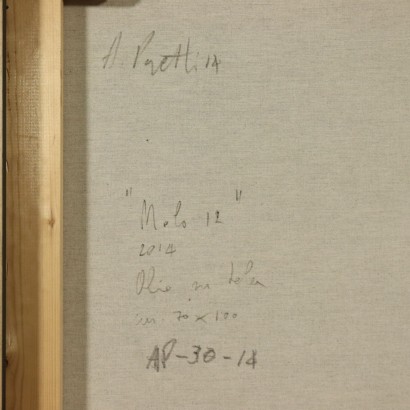 A. Poretti 14
"Molo 12"
2014
Olio su tela
cm. 70 x 100
AP-30-14